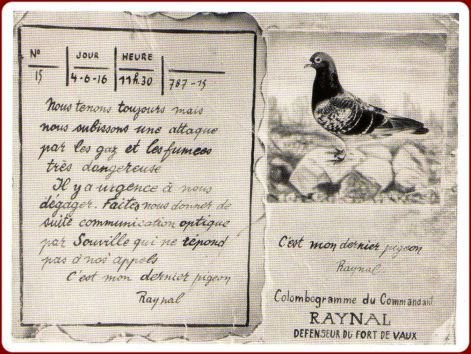 N° | JOUR | HEURE
15 | 4-6-16 | 11h.30 | 787-15
Nous tenons toujours mais
nous subissons une attaque
par les gaz et les fumees
très dangereuse
Il y a urgence à nous
dégager. Faites nous donner de
suite communication optique
par Souville qui ne répond
pas à nos appels
C'est mon dernier pigeon
Raynal
C'est mon dernier pigeon
Raynal
Colombogramme du Commandant
RAYNAL
DEFENSEUR DU FORT DE VAUX